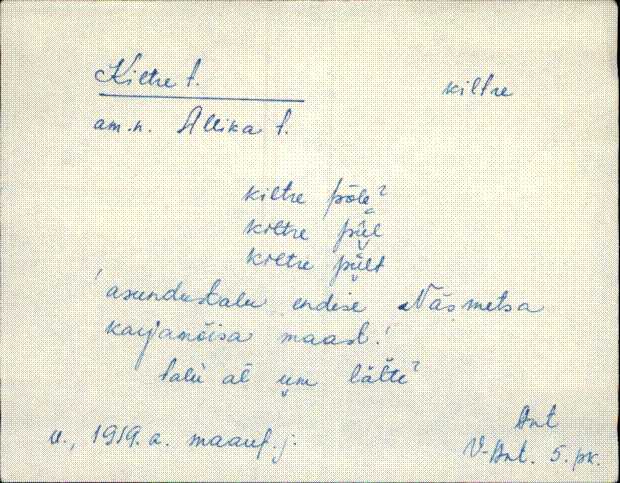 Kiltre t. kiltre
am.n. Allika t.
kiltre põle?
kiltre püĺ
kiltre pült
'asundustalu endise Näsmetsa
karjamõisa maast.'
talu al um läte?
u., 1919.a. maauf.j. Ant
V-Ant. 5. pk.